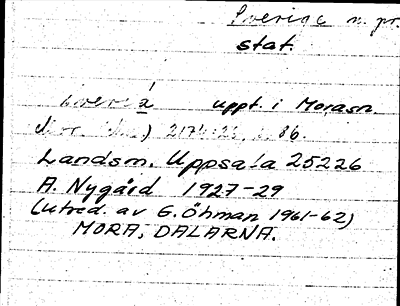 Sverige n. pr.
stat.
uppt. i Morasn.
Landsm. Uppsala 25226
A. Nygård 1927-29
(utred. av G. Öhman 1961-62)
MORA, DALARNA.